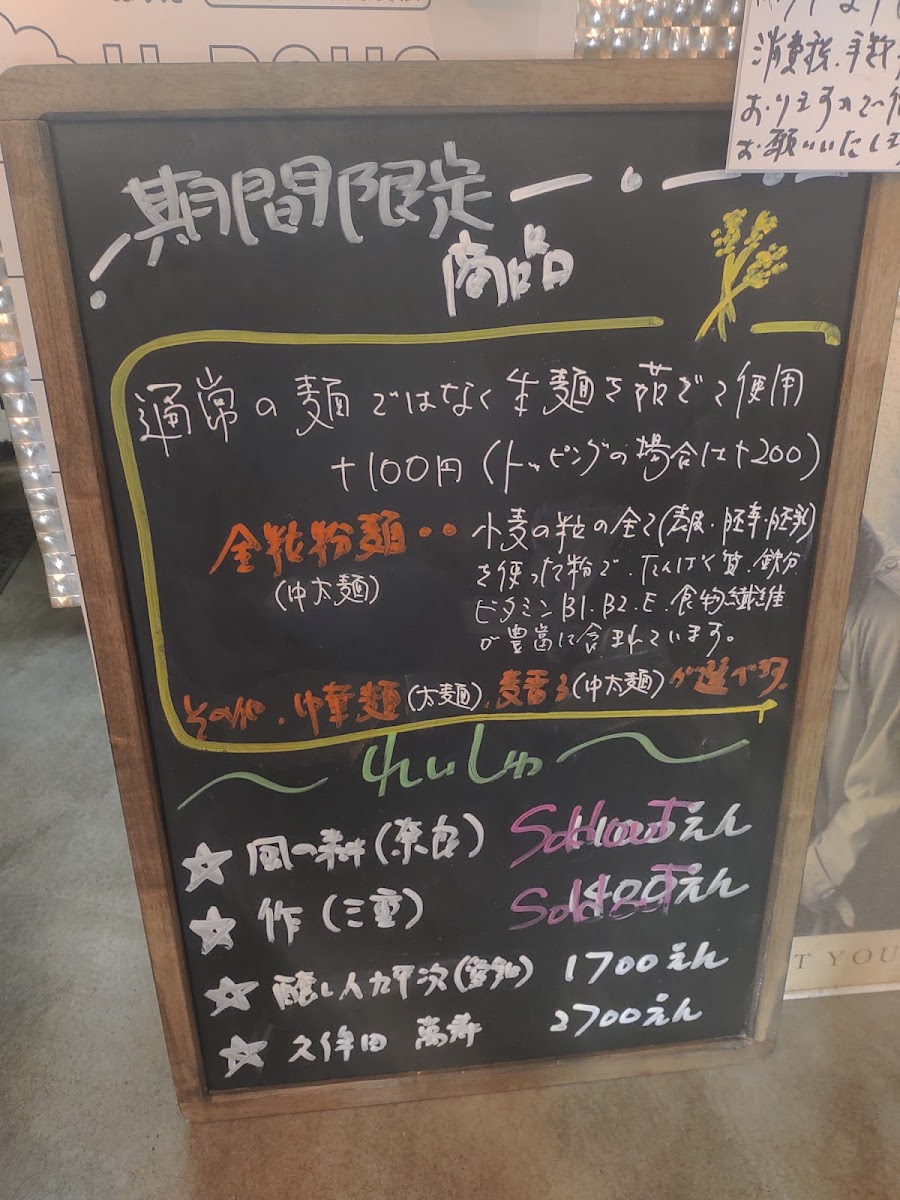 消費税、手数
おりますので、
お願いいたしま
期間限定
商品
通常の麺ではなく生麺を茹でて使用
+100円(トッピングの場合は+200)
全粒粉麺・・
(中太麺)
小麦の粒の全て(表皮・胚芽・胚乳)
を使った粉で、たんぱく質、鉄分
ビタミンB1.B2.E.食物繊維
が豊富に含まれています。
その他、中華麺(太麺)、麦香る(中太麺)が選べます。
〜れいしゅ〜
☆ 風の森(奈良) Sold out えん
☆ 作(三重) 1400えん Sold out
☆ 醸し人九平次(愛知) 1700えん
☆ 久保田 萬寿 2700えん
T YOU